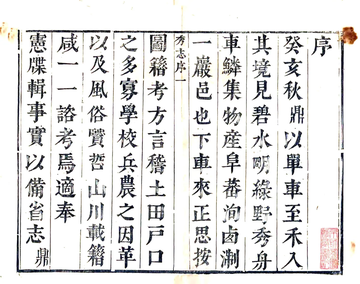 序
癸亥秋鼎以單車至禾入
其境見碧水明綠野秀舟
車鱗集物產阜蕃洵鹵淛
一巖邑也下車來正思按
秀志序一
圖籍考方言稽土田戶口
之多寡學校兵農之因革
以及風俗賢哲山川載籍
咸一一諮考焉適奉
憲牒輯事實以備省志鼎